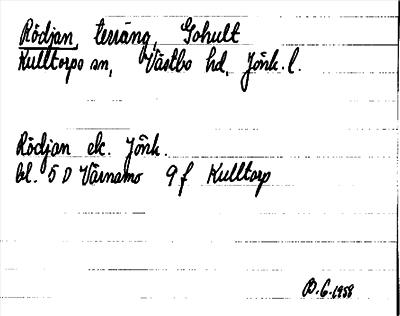 Rödjan, terräng, Gohult
Kulltorps sn, Västbo hd, Jönk. l.
Rödjan ek. Jönk.
bl. 5 D Värnamo 9 f Kulltorp
B.G. 1958